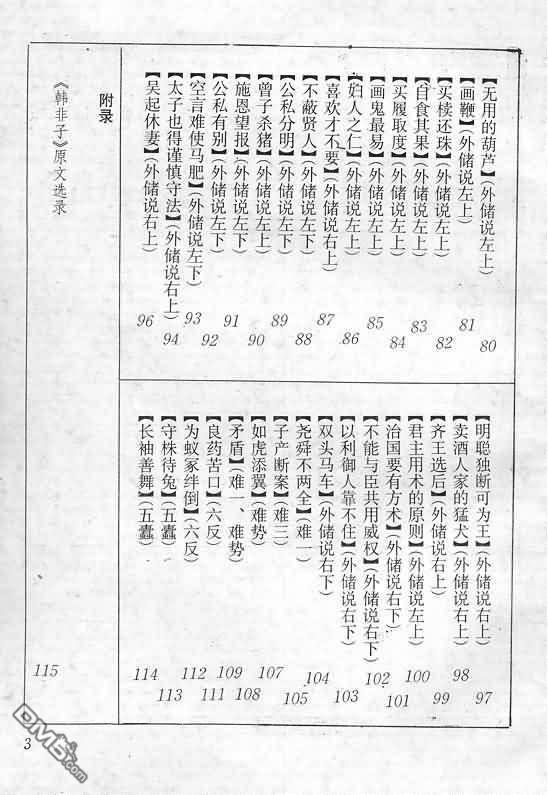 【无用的葫芦】(外储说左上) 80
【画鞭】(外储说左上) 81
【买椟还珠】(外储说左上) 82
【自食其果】(外储说左上) 83
【买履取度】(外储说左上) 84
【画鬼最易】(外储说左上) 85
【妇人之仁】(外储说左上) 86
【喜欢才不要】(外储说右上) 87
【不蔽贤人】(外储说左下) 88
【公私分明】(外储说左下) 89
【曾子杀猪】(外储说左上) 90
【施恩望报】(外储说左下) 91
【公私有别】(外储说左下) 92
【空言难使马肥】(外储说左下) 93
【太子也得谨慎守法】(外储说右上) 94
【吴起休妻】(外储说右上) 96
【明聪独断可为王】(外储说右上) 97
【卖酒人家的猛犬】(外储说右上) 98
【齐王选后】(外储说右上) 99
【君主用术的原则】(外储说左上) 100
【治国要有方术】(外储说右下) 101
【不能与臣共用威权】(外储说右下) 102
【以利御人靠不住】(外储说右下) 103
【双头马车】(外储说右下) 104
【尧舜不两全】(难一) 105
【子产断案】(难三) 107
【如虎添翼】(难势) 108
【矛盾】(难一、难势) 109
【良药苦口】(六反) 111
【为蚁冢绊倒】(六反) 112
【守株待兔】(五蠹) 113
【长袖善舞】(五蠹) 114
附录
《韩非子》原文选录 115
3
DM5.com